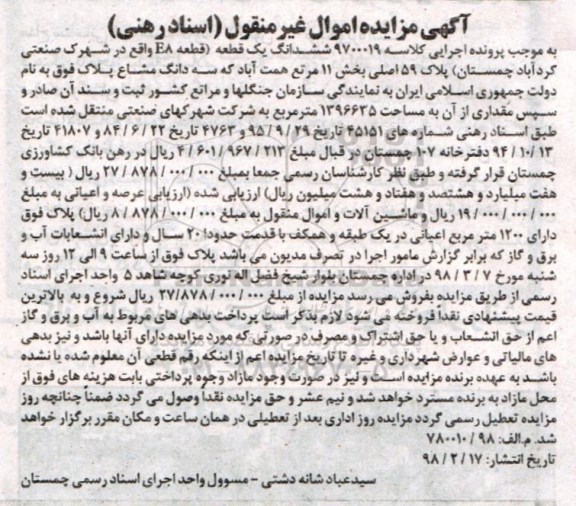 آگهی مزایده اموال غیر منقول (اسناد رهنی)
به موجب پرونده اجرایی کلاسه ۹۷۰۰۰۱۹ ششدانگ یک قطعه (قطعه E۸ واقع در شهرک صنعتی
کردآباد چمستان) پلاک ۵۹ اصلی بخش ۱۱ مرتع همت آباد که سه دانگ مشاع پلاک فوق به نام
دولت جمهوری اسلامی ایران به نمایندگی سازمان جنگلها و مراتع کشور ثبت و سند آن صادر و
سپس مقداری از آن به مساحت ۱۳۹۶۶۳۵ مترمربع به شرکت شهرکهای صنعتی منتقل شده است
طبق اسناد رهنی شماره های ۴۵۱۵۱ تاریخ ۲۹ / ۹ / ۹۵ و ۴۷۶۳ تاریخ ۲۲ / ۶ / ۸۴ و ۴۱۸۰۷ تاریخ
۱۳ / ۱۰ / ۹۴ دفترخانه ۱۰۷ چمستان در قبال مبلغ ۲۱۳ / ۹۶۷ / ۶۰۱ / ۴ ریال در رهن بانک کشاورزی
چمستان قرار گرفته و طبق نظر کارشناسان رسمی جمعا بمبلغ ۰۰۰ / ۰۰۰ / ۸۷۸ / ۲۷ ریال ( بیست و
هفت میلیارد و هشتصد و هفتاد و هشت میلیون ریال) ارزیابی شده (ارزیابی عرصه و اعیانی به مبلغ
۰۰۰ / ۰۰۰ / ۰۰۰ / ۱۹ ریال و ماشین آلات و اموال منقول به مبلغ ۰۰۰ / ۰۰۰ / ۸۷۸ / ۸ ریال) پلاک فوق
دارای ۱۲۰۰ متر مربع اعیانی در یک طبقه و همکف با قدمت حدودا ۲۰ سال و دارای انشعابات آب و
برق و گاز که برابر گزارش مامور اجرا در تصرف مدیون می باشد پلاک فوق از ساعت ۹ الی ۱۲ روز سه
شنبه مورخ ۷ / ۳ / ۹۸ در اداره چمستان بلوار شیخ فضل اله نوری کوچه شاهد ۵ واحد اجرای اسناد
رسمی از طریق مزایده بفروش می رسد مزایده از مبلغ ۰۰۰ / ۰۰۰ / ۲۷/۸۷۸ ریال شروع و به بالاترین
قیمت پیشنهادی نقدا فروخته می شود لازم بذکر است پرداخت بدهی های مربوط به آب و برق و گاز
اعم از حق انشعاب و یا حق اشتراک و مصرف در صورتی که مورد مزایده دارای آنها باشد و نیز بدهی
های مالیاتی و عوارض شهرداری و غیره تا تاریخ مزایده اعم از اینکه رقم قطعی آن معلوم شده یا نشده
باشد به عهده برنده مزایده است و نیز در صورت وجود مازاد وجوه پرداختی بابت هزینه های فوق از
محل مازاد به برنده مسترد خواهد شد و نیم عشر و حق مزایده نقدا وصول می گردد ضمناً چنانچه روز
مزایده تعطیل رسمی گردد مزایده روز اداری بعد از تعطیلی در همان ساعت و مکان مقرر برگزار خواهد
شد. م.الف: ۹۸ / ۷۸۰۰۱۰
تاریخ انتشار: ۱۷ / ۲ / ۹۸
سیدعباد شانه دشتی - مسوول واحد اجرای اسناد رسمی چمستان